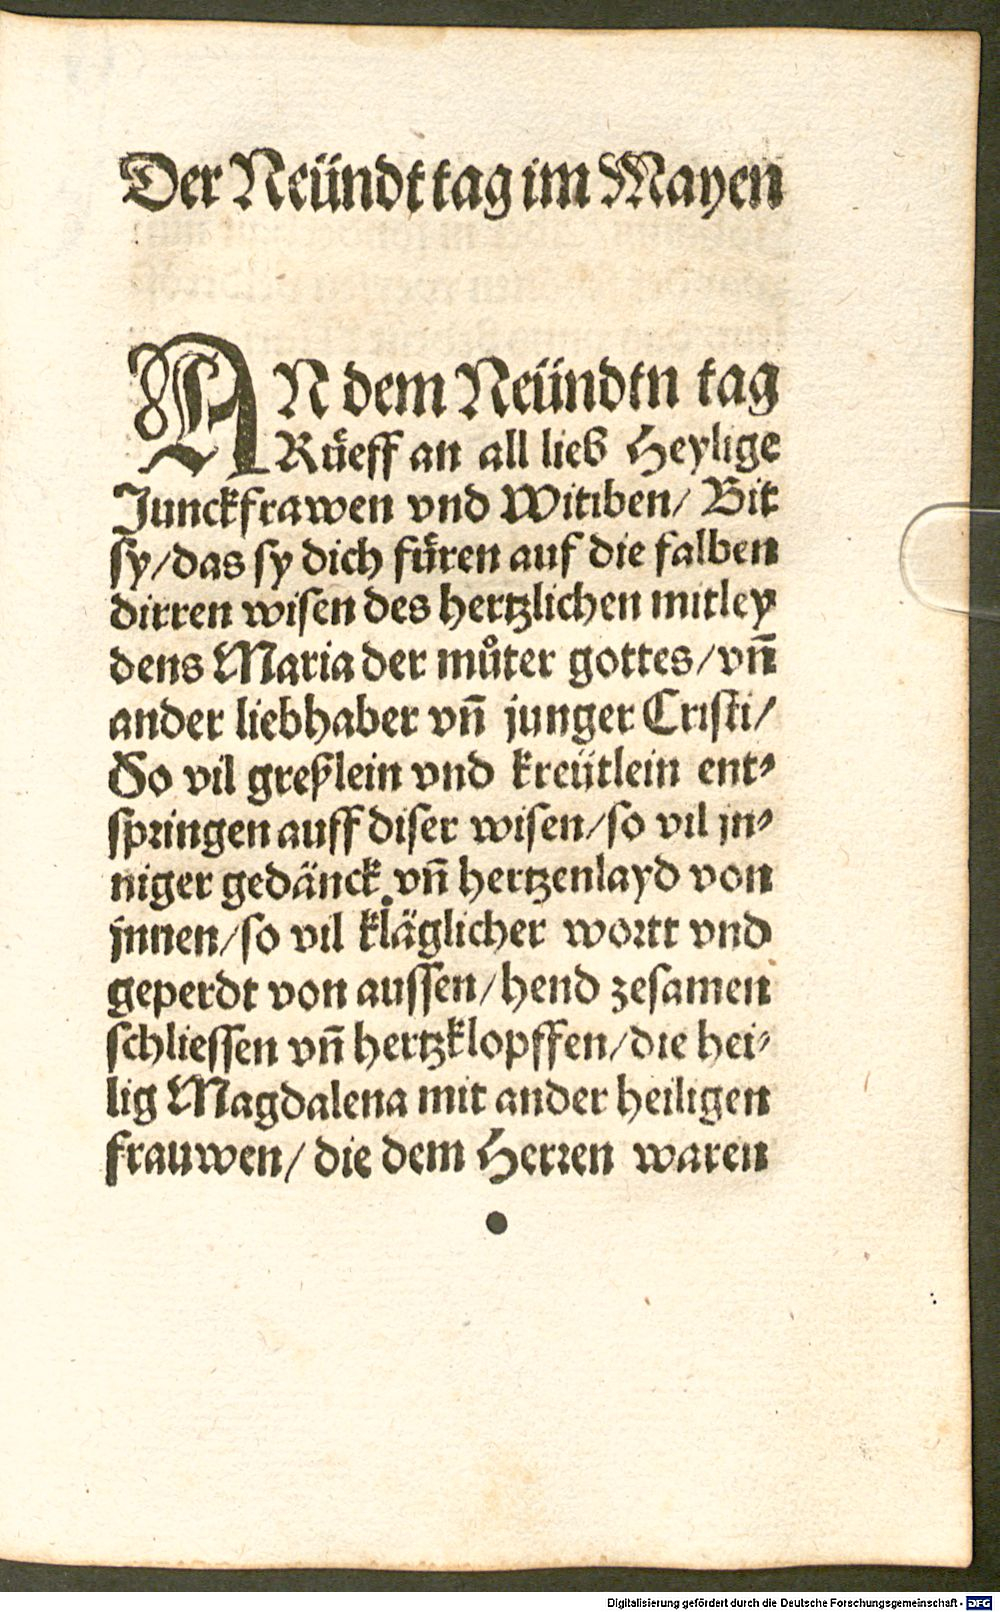 Der Neündt tag im Mayen
AN dem Neündtn tag
Rüeff an all lieb Heylige
Junckfrawen vnd Witiben/ Bit
sy/das sy dich füren auf die falben
dirren wisen des hertzlichen mitley
dens Maria der můter gottes/vñ
ander liebhaber vñ junger Cristi/
So vil greßlein vnd kreütlein ent⸗
springen auff diser wisen/so vil jn⸗
niger gedänck vñ hertzenlayd von
jnnen/so vil kläglicher wortt vnd
geperdt von aussen/hend zesamen
schliessen vñ hertzklopffen/die hei⸗
lig Magdalena mit ander heiligen
frauwen/ die dem Herren waren
Digitalisierung gefördert durch die Deutsche Forschungsgemeinschaft - DFG